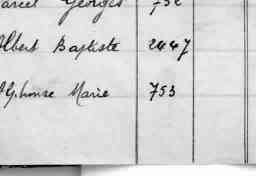 Marcel Georges 732
Albert Baptiste 2447
Alphonse Marie 753